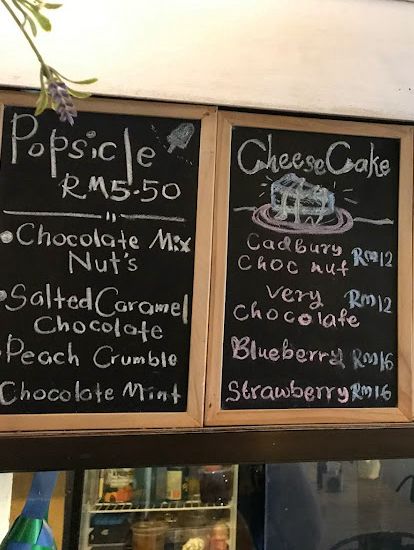 Popsicle
RM5.50
• Chocolate Mix
Nut's
• Salted Caramel
Chocolate
• Peach Crumble
Chocolate Mint
CheeseCake
Cadbury
Choc nut RM12
Very
Chocolate RM12
Blueberry RM16
Strawberry RM16